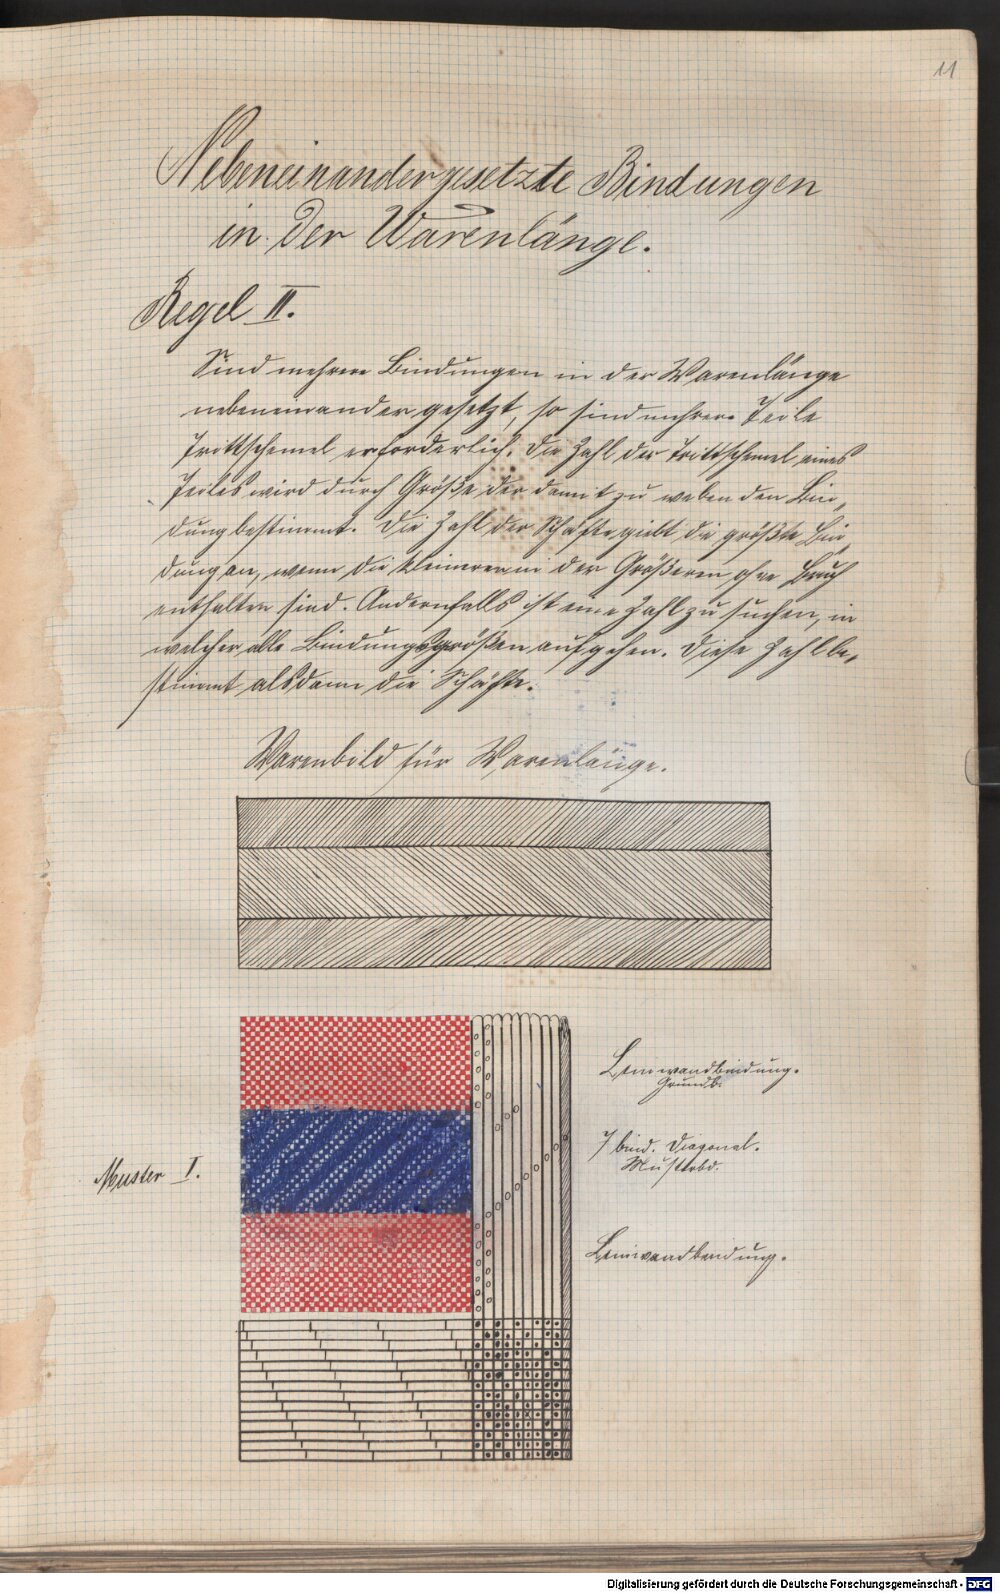 11
Nebeneinandergesetzte Bindungen
in der Warenlänge.
Regel II.
Sind mehrere Bindungen in der Warenlänge
nebeneinander gesetzt, so sind mehrere Teile
Trittschemel erforderlich. Die Zahl der Trittschemel eines
Teiles wird durch Größe der damit zu webenden Bin-
dung bestimmt. Die Zahl der Schäfte giebt die größte Bin-
dung an, wenn die kleineren in der Größeren ohne Bruch
enthalten sind. Andernfalls ist eine Zahl zu suchen, in
welcher alle Bindungsgrößen aufgehen. Diese Zahl be-
stimmt alsdann die Schäfte.
Warenbild für Warenlänge.
Leinwandbindung.
Grundb.
7 bind. Diagonal.
Musterbd.
Muster I.
Leinwandbindung.
Digitalisierung gefördert durch die Deutsche Forschungsgemeinschaft - DFG